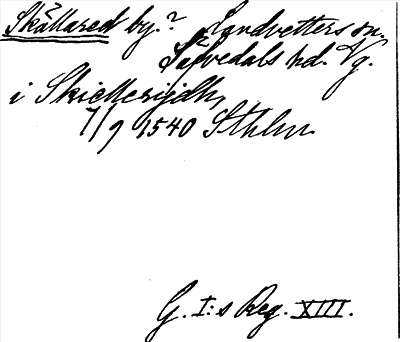 Skällared by.? Landvetters sn.
Sävedals hd. Vg.
i Skiellerydh,
7/9 1540 Sthlm.
G. I:s Reg. XIII.